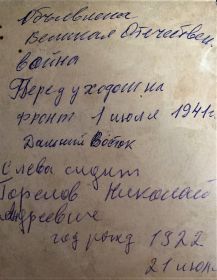 Объявлена
Великая Отечествен.
война
Перед уходом на
фронт 1 июля 1941 г.
Дальний Восток
Слева сидит
Горелов Николай
Андреевич
год рожд 1922
21 июл.